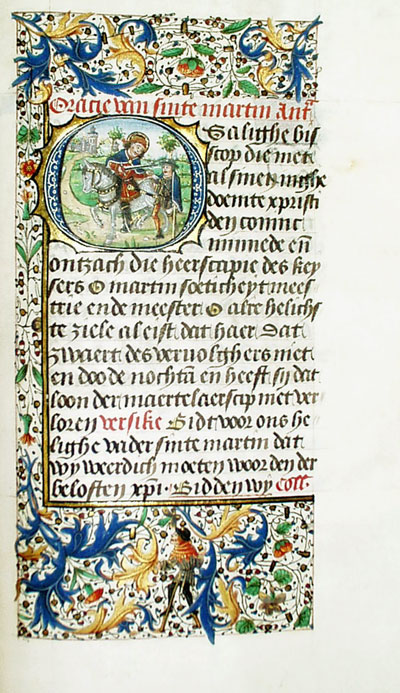 Oratie van sinte martin Ant
O Salighe bis
scop die met
al sinen inghe
doemte xpristi
den coninc
minnede eñ
ontzach die heerscapie des key
sers O martin soeticheyt mees
trie ende meester O alre helichs
te ziele al eist dat haer dat
zwaert des vervolghers niet
en doode nochtā en heeft sij dat
loon der maertelaerscap niet ver
loren versike Bidt voor ons he
lighe vader sinte martin dat
wy weerdich moeten woorden der
beloften xpi. Bidden wy Coll